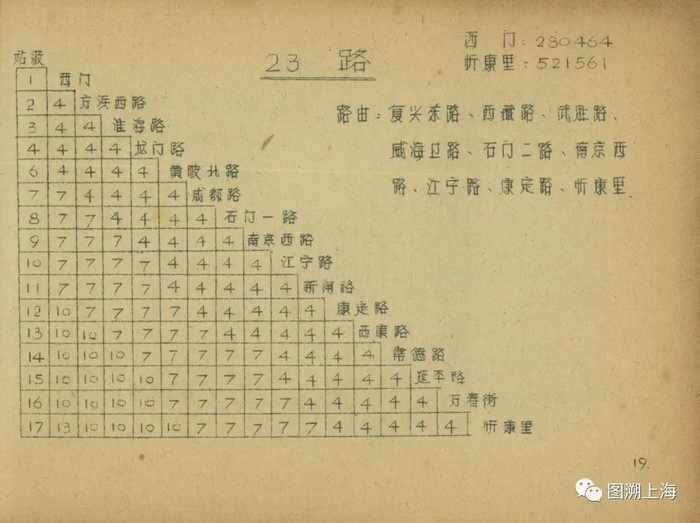 23 路
西 门: 280464
忻康里: 521561
路由: 复兴东路、西藏路、武胜路、
威海卫路、石门二路、南京西
路、江宁路、康定路、忻康里
站级
1 西门
2 4 方浜西路
3 4 4 淮海路
4 4 4 4 龙门路
6 4 4 4 4 黄陂北路
7 7 4 4 4 4 成都路
8 7 7 4 4 4 4 石门一路
9 7 7 7 4 4 4 4 南京西路
10 7 7 7 7 4 4 4 4 江宁路
11 7 7 7 7 4 4 4 4 4 新闸路
12 10 7 7 7 7 4 4 4 4 4 康定路
13 10 10 7 7 7 7 4 4 4 4 4 西康路
14 10 10 10 7 7 7 7 7 4 4 4 4 常德路
15 10 10 10 10 7 7 7 7 4 4 4 4 4 延平路
16 10 10 10 10 7 7 7 7 7 4 4 4 4 4 万春街
17 13 10 10 10 10 7 7 7 7 7 4 4 4 4 4 忻康里
19.
图溯上海